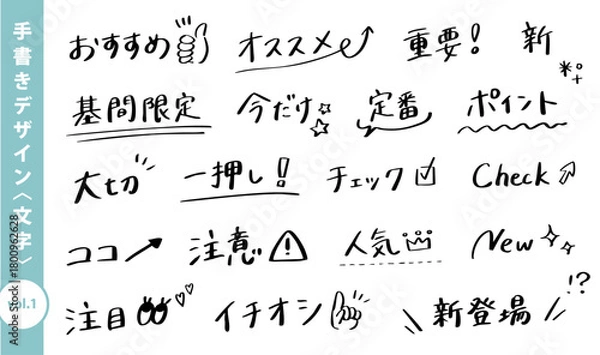 手書きデザイン〈文字〉
おすすめ オススメ 重要! 新
基間限定 今だけ 定番 ポイント
大切 一押し! チェック Check
ココ 注意 人気 New
注目 イチオシ 新登場 !?
Adobe Stock | #1800962628